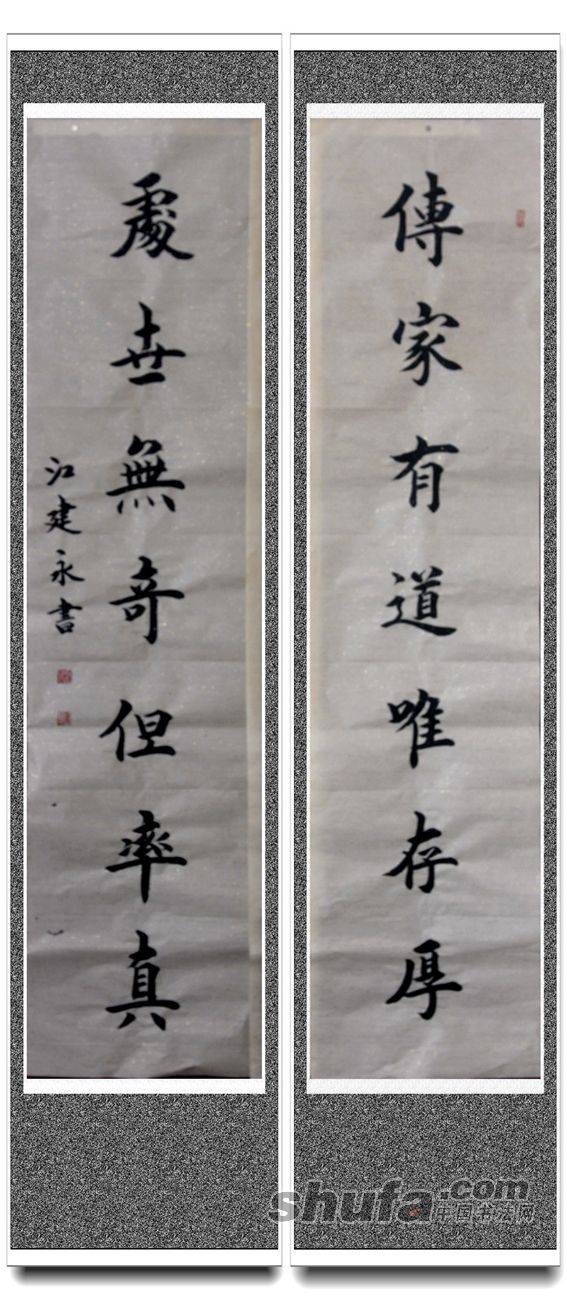 傳家有道唯存厚
處世無奇但率真
江建永書
shufa.com
中国书法网